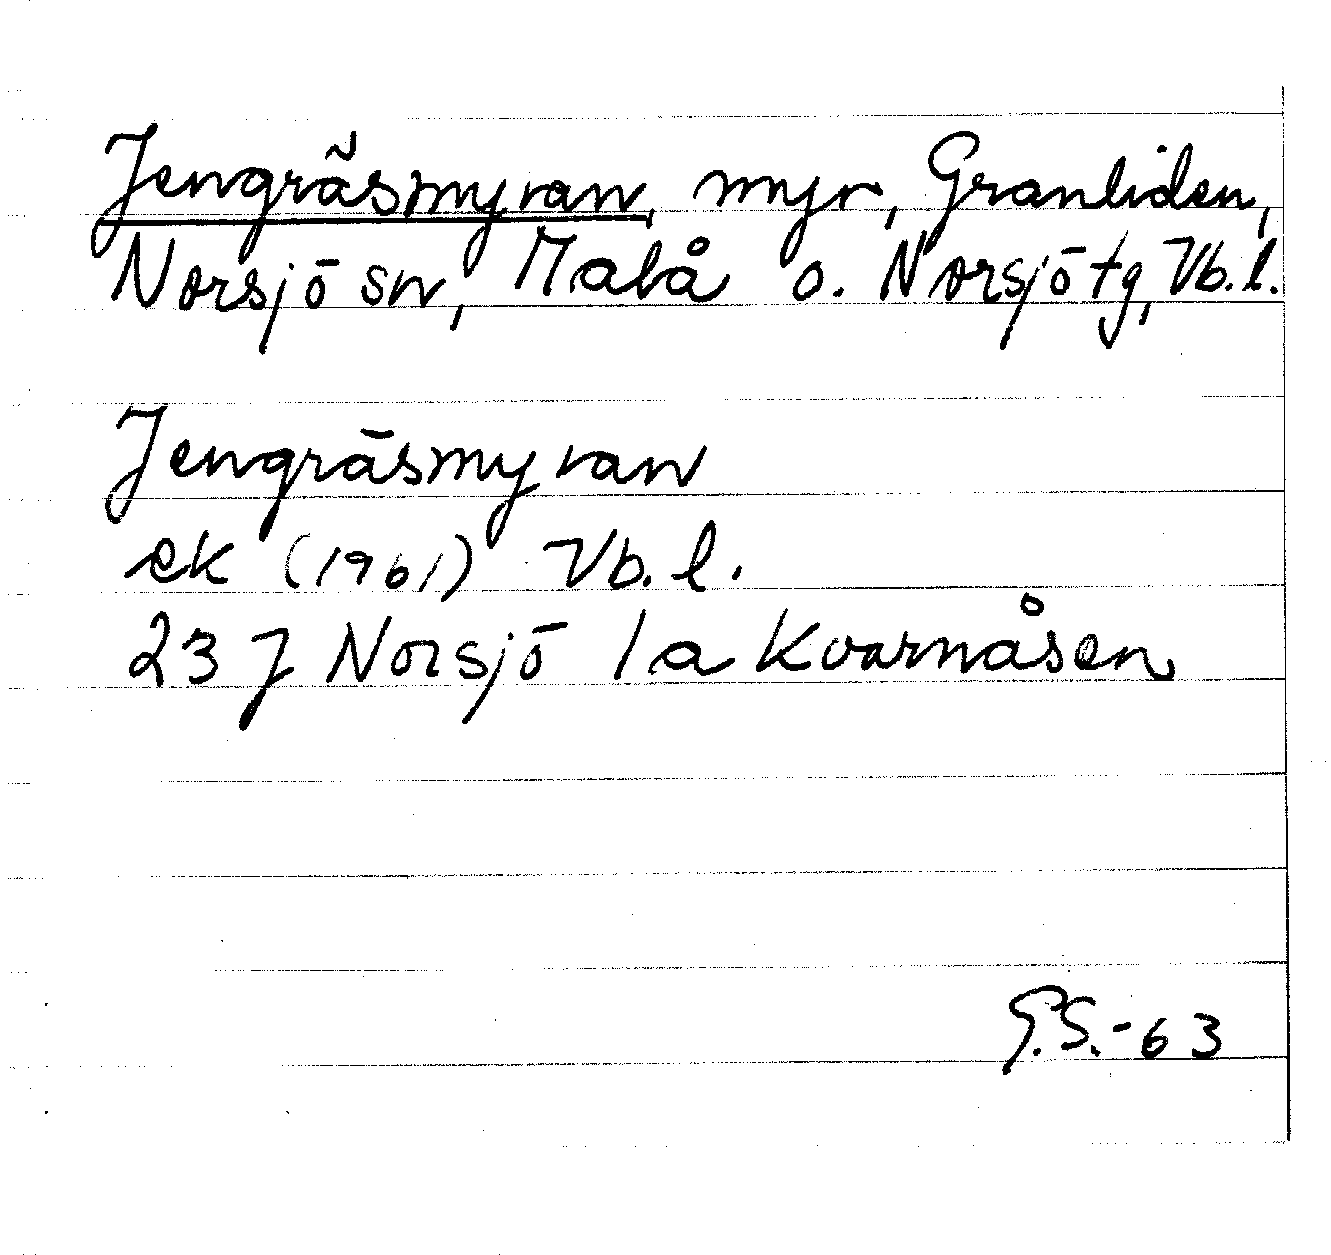 Jengräsmyran, myr, Granliden,
Norsjö sn, Malå o. Norsjö tg, Vb. l.
Jengräsmyran
ek (1961) Vb. l.
23 J Norsjö 1 a Kvarnåsen
G.S.-63